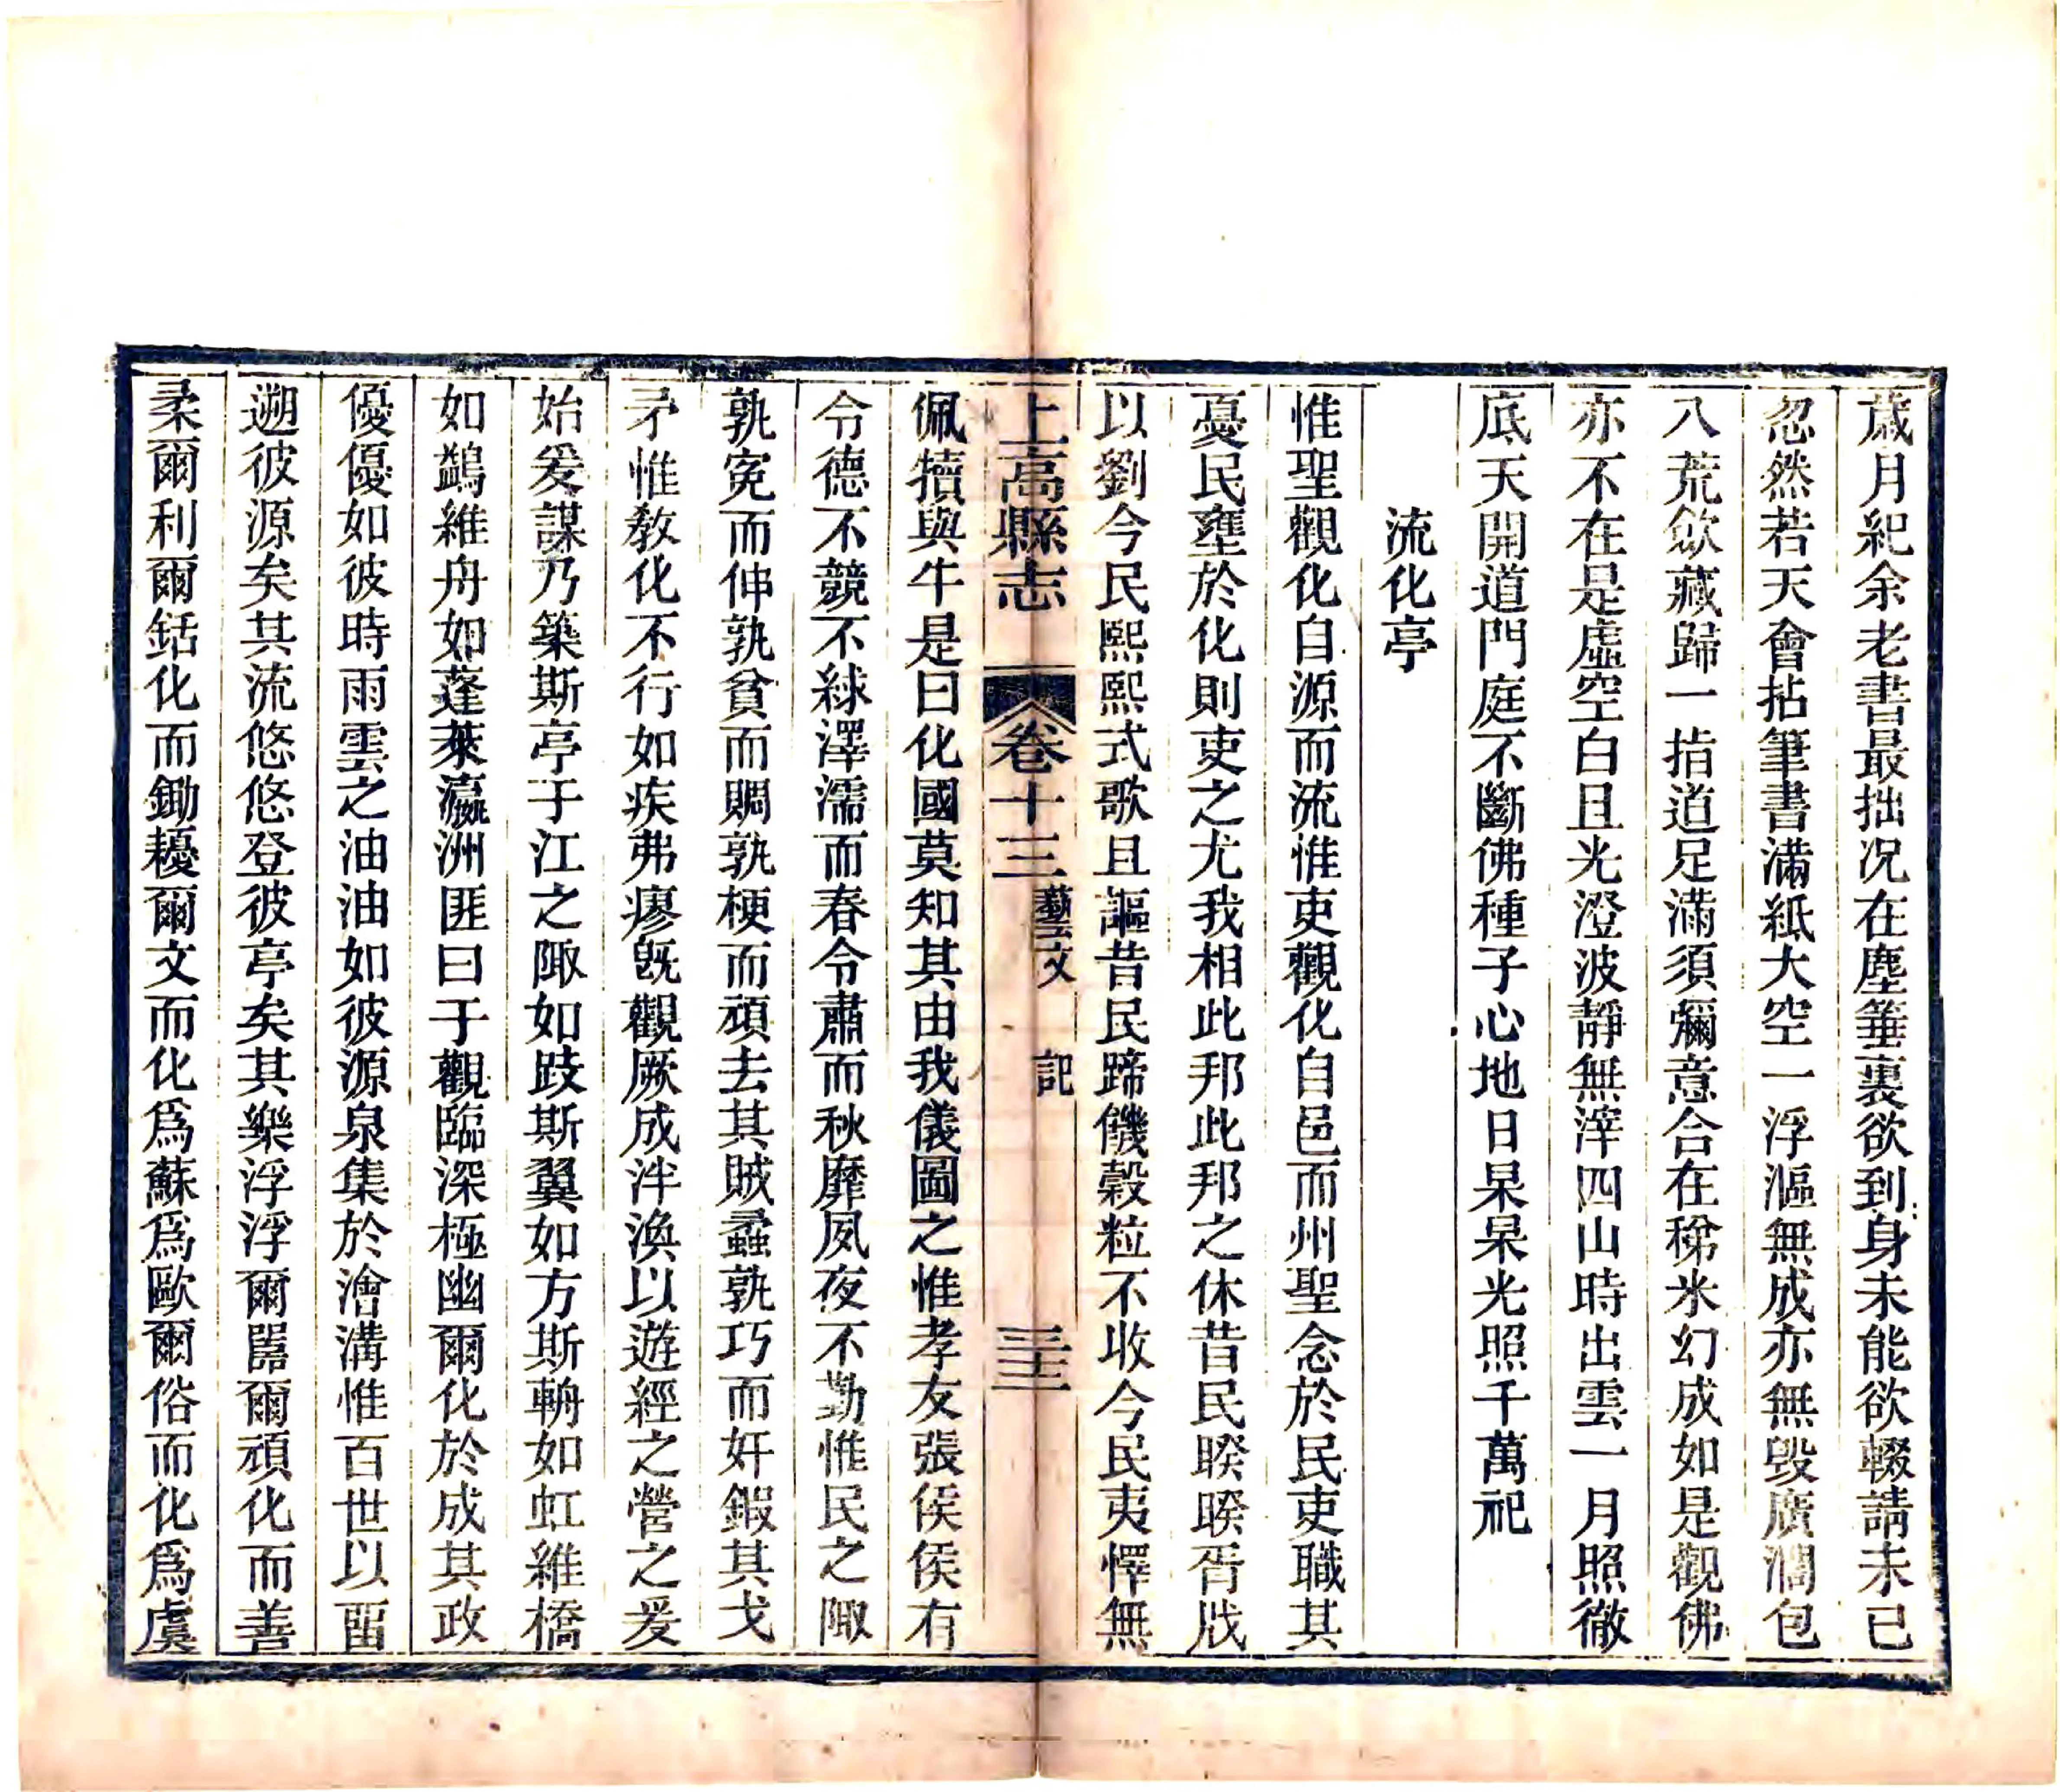 歲月紀余老書最拙况在塵箠裏欲到身未能欲輟請未已
忽然若天會拈筆書滿紙大空一浮漚無成亦無毀廣濶包
八荒歛藏歸一指道足滿須彌意合在稊米幻成如是觀佛
亦不在是虛空白且光澄波靜無滓四山時出雲一月照徹
底天開道門庭不斷佛種子心地日杲杲光照千萬祀
流化亭
惟聖觀化自源而流惟吏觀化自邑而州聖念於民吏職其
憂民壅於化則吏之尤我相此邦此邦之休昔民睽睽胥戕
以劉今民熙熙式歌且謳昔民蹄饑穀粒不收今民夷懌無
上高縣志 卷十三 藝文 記 三十二
佩犢與牛是曰化國莫知其由我儀圖之惟孝友張侯侯有
令德不競不絿澤濡而春令肅而秋靡夙夜不勤惟民之陬
孰寃而伸孰貧而賙孰梗而頑去其賊蟊孰巧而奸鍜其戈
矛惟敎化不行如疾弗瘳旣觀厥成泮渙以遊經之營之爰
始爰謀乃築斯亭于江之陬如跂斯翼如方斯輈如虹維橋
如鷁維舟如蓬萊瀛洲匪曰于觀臨深極幽爾化於成其政
優優如彼時雨雲之油油如彼源泉集於澮溝惟百世以酉
遡彼源矣其流悠悠登彼亭矣其樂浮浮爾嚚爾頑化而善
柔爾利爾銛化而鋤耰爾文而化爲蘇爲歐爾俗而化爲虞